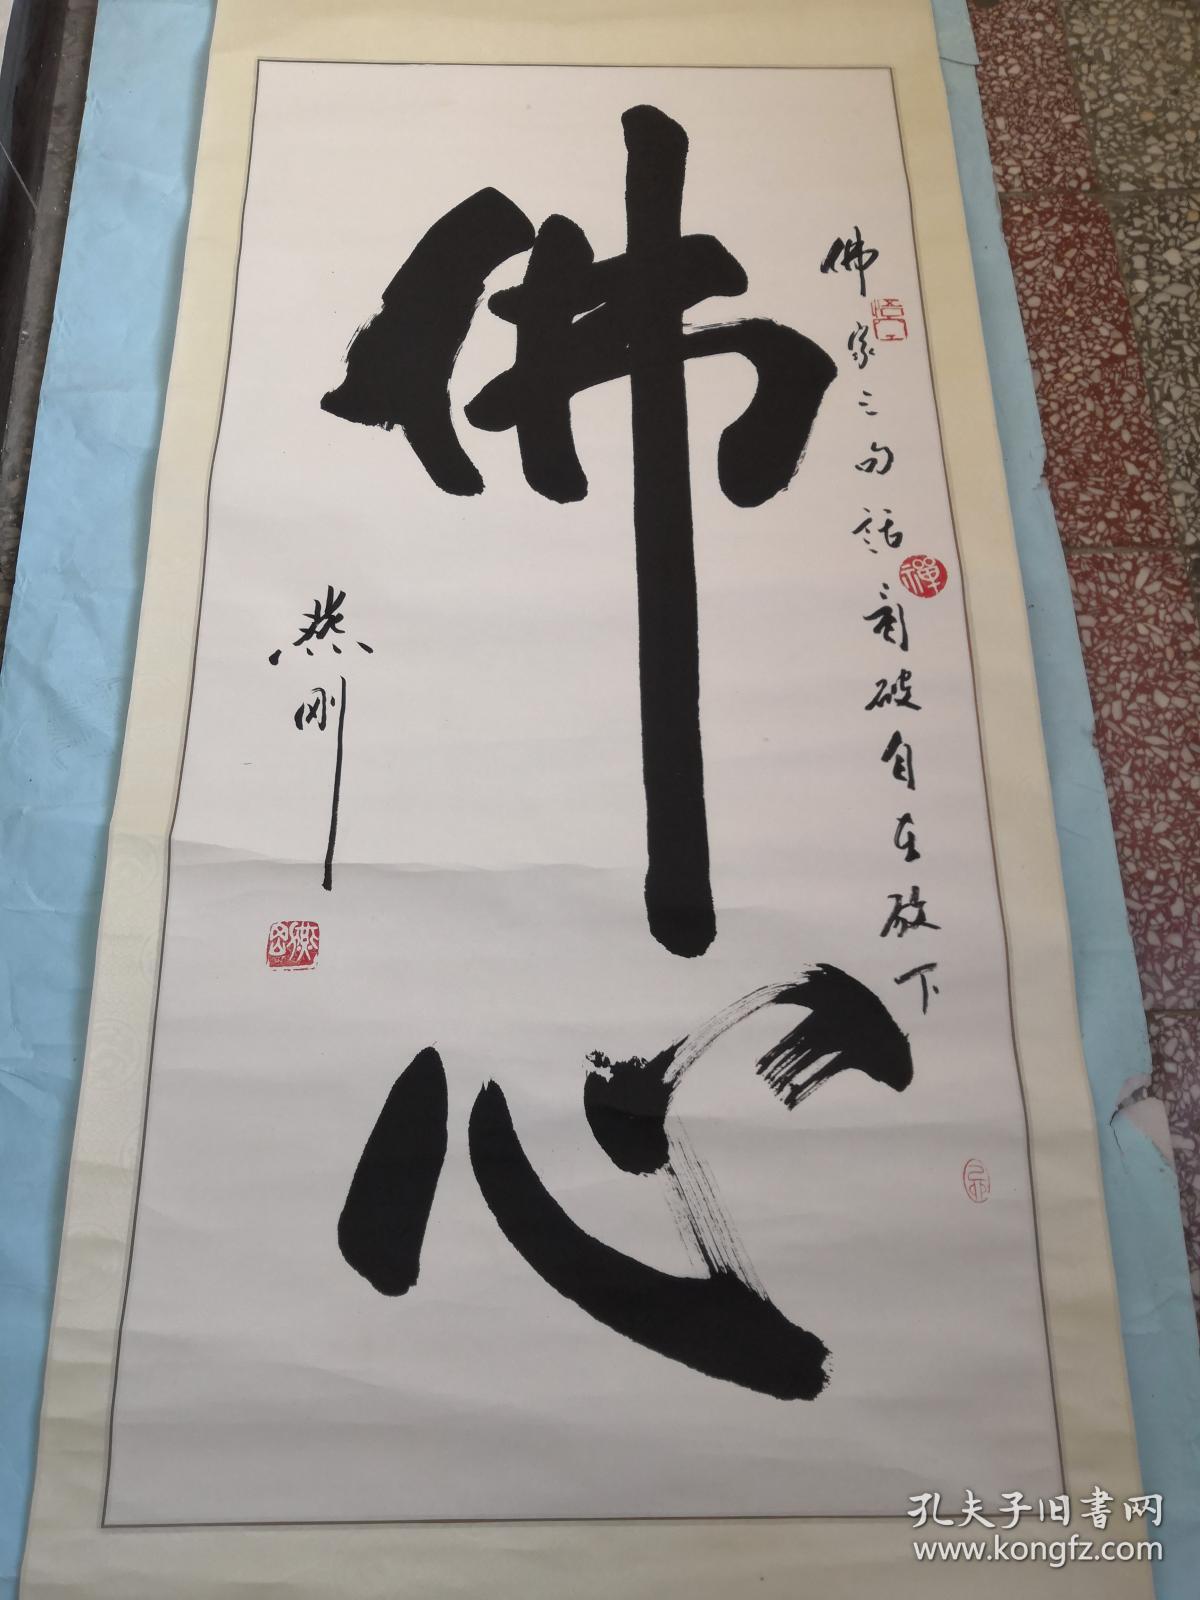 佛心
佛家三句话看破自在放下
燕刚
禅
孔夫子旧书网
www.kongfz.com